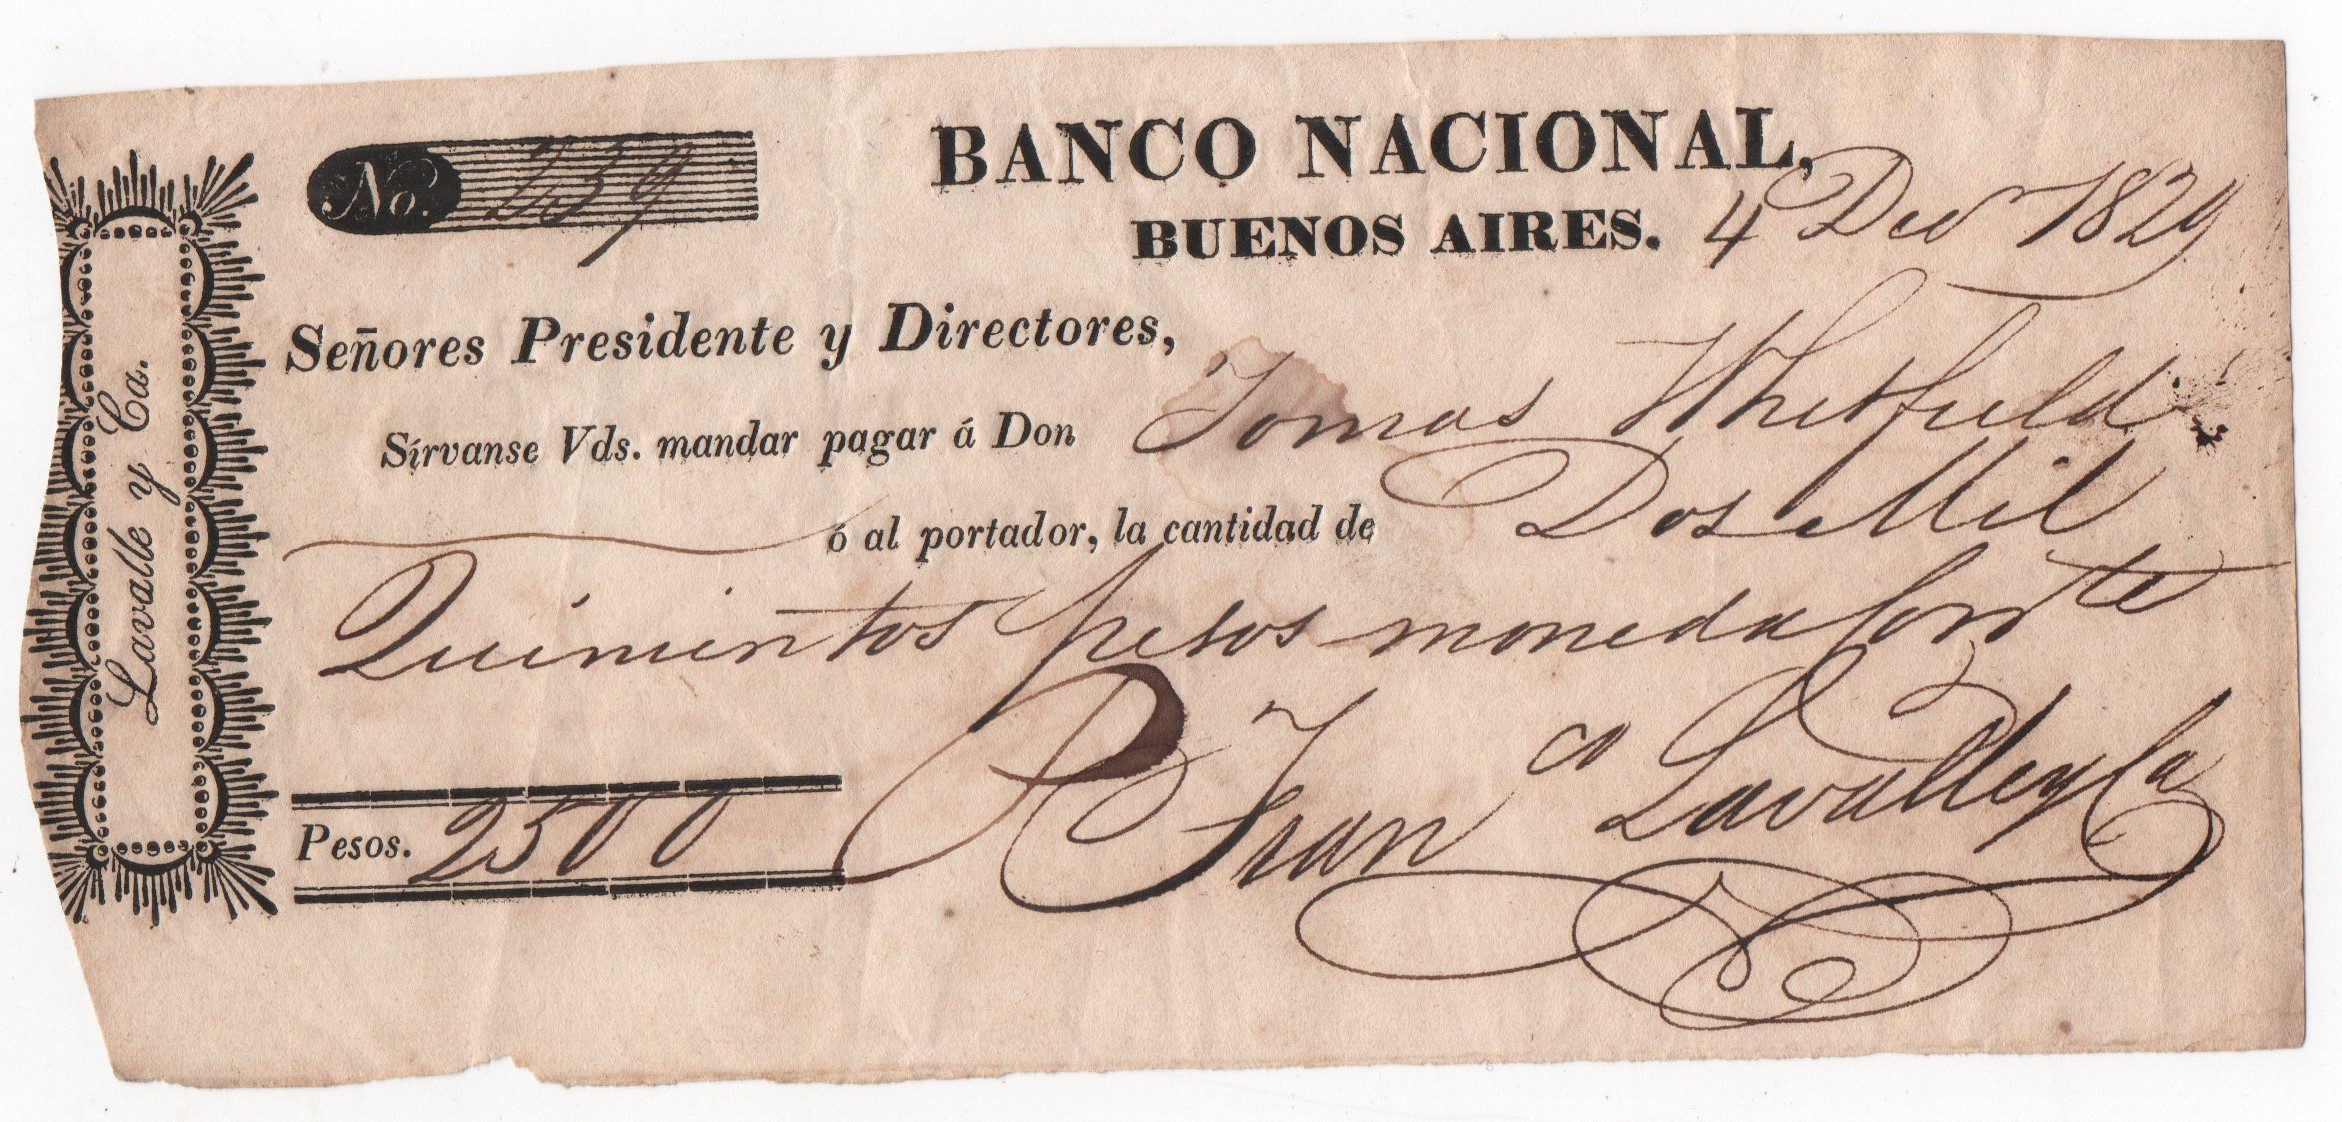 No. 239
BANCO NACIONAL,
BUENOS AIRES. 4 Dec 1829
Señores Presidente y Directores,
Sírvanse Vds. mandar pagar á Don Tomas Whitfield
ó al portador, la cantidad de Dos Mil
Quinientos pesos moneda corrte
Franco Lavalle y Ca
Pesos. 2500
Lavalle y Ca.